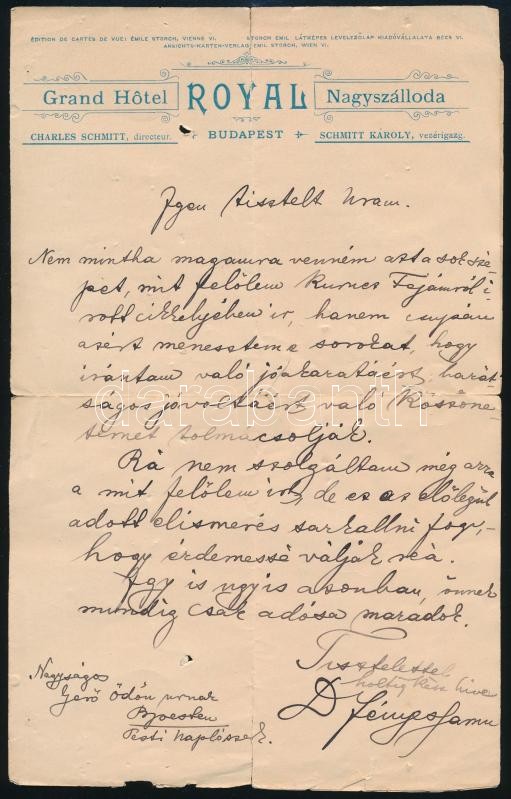 ÉDITION DE CARTES DE VUE: ÉMILE STORCH, VIENNE VI. STORCH EMIL LÁTKÉPES LEVELEZŐLAP KIADÓVÁLLALATA BÉCS VI.
ANSICHTS-KARTEN-VERLAG EMIL STORCH, WIEN VI.
Grand Hôtel ROYAL Nagyszálloda
CHARLES SCHMITT, directeur. BUDAPEST SCHMITT KÁROLY, vezérigazg.
Igen tisztelt Uram.
Nem mintha magamra venném azt a sok szé-
pet, mit felőlem Kurucz Fájámról i-
rott cikkelyében ir, hanem csupán
azért menesztem e sorokat, hogy
irántam való jóakaratáért, barát-
ságos jóvoltáért való Köszöne-
temet tolmácsolják.
Rá nem szolgáltam még arra
a mit felőlem ir, de ez az előlegül
adott elismerés sarkallni fog,-
hogy érdemessé váljak reá.
Igy is ugyis azonban, önnek
mindig csak adósa maradok.
Tisztelettel
holtig kész hive
D Fényes Samu
Nagyságos
Gerő Ödön urnak
Bpesten
Pesti Napló
darabanth